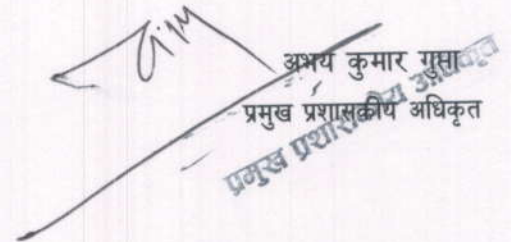 अभय कुमार गुप्ता
प्रमुख प्रशासकीय अधिकृत
प्रमुख प्रशासकीय अधिकृत